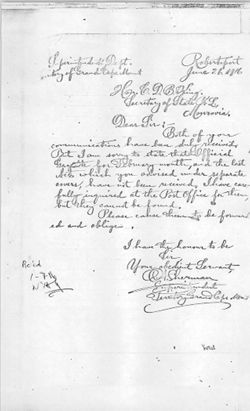 Superintendent Dept.
Territory of Grand Cape Mount
Robertsport
June 28, 1916
Hon. C. D. B. King,
Secretary of State R. L.
Monrovia.
Dear Sir:-
Both of your
communications have been duly received
But I am sorry to state that Official
for February month, and the last
Acts which you advised under separate
cover, have not been received, I have care-
fully inquired at the Post Office for them,
but they cannot be found.
Please cause them to be forward
ed and oblige.
I have the honour to be
Sir
Your Obdient Servant,
Sherman
Superintendent
Territory Grand Cape Mount
Rec'd